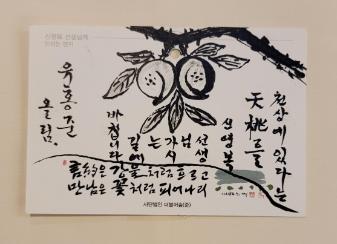 신영복 선생님께
드리는 엽서
천상에 있다는
天桃를
신영복
선생
님
가시
는
길에
바칩니다
유홍준
올림.
강물처럼 흐르고
만남은 꽃처럼 피어나리
사단법인 더불어숲(준)